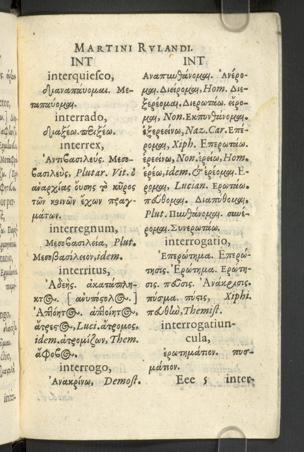 MARTINI RVLANDI.
INT
interquiesco,
διαναπαύομαι. Με-
ταπαύομαι.
interrado,
διαξέω.
interrex,
Ἀντιβασιλεύς. Μεσο-
βασιλεύς, Plutar. Vit. ὁ
ἀναρχίας οὔσης τὸ κῦρος
τῶν κοινῶν ἔχων πραγ-
μάτων.
interregnum,
Μεσοβασιλεία, Plut.
Μεσοβασίλειον, idem.
interritus,
Ἀδεής. ἀκατάπλη-
κτος.
Ἀπτόητος. ἀπτοίητος,
ἄτρεστος, Luci. ἄτρομος,
idem. ἀτρομίζων, Them.
ἄφοβος.
interrogo,
Ἀνακρίνω, Demost.
INT
Ἀναπυνθάνομαι. Ἀνέρο-
μαι. Διείρομαι, Hom. Διε-
ξερέομαι. Διερωτάω. εἴρο-
μαι, Non. Ἐκπυνθάνομαι.
ἐξερεείνω, Naz. Car. Ἐπέ-
ρομαι, Xiph. Ἐπερωτάω.
ἐρεείνω, Non. ἐρέω, Hom.
ἐρέω, idem. & ἐρέομαι. Ἔ-
ρομαι, Lucian. Ἐρωτάω.
Διαπύθομαι,
Plut. Πυνθάνομαι. συνέ-
ρομαι. Συνερωτάω.
interrogatio,
Ἐπερώτημα. Ἐπερώ-
τησις. Ἐρώτημα. Ἐρώτη-
σις. πεῦσις. Ἀνάκρισις.
πύσμα. πύστις, Xiphi.
Themist.
interrogatiun-
cula,
ἐρωτημάτιον. πυσ-
μάτιον.
Eee 5 inter-